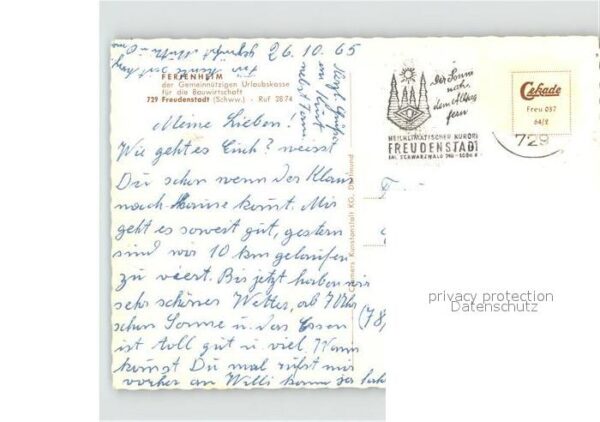 26.10.65
FERIENHEIM
der Gemeinnützigen Urlaubskasse
für die Bauwirtschaft
729 Freudenstadt (Schww.) - Ruf 2874
Meine Lieben!
Wie geht es Euch? weisst
Du schon wenn der Klaus
nach Hause kommt. Mir
geht es soweit gut, gestern
sind wir 10 km gelaufen
zu viert. Bis jetzt haben wir
sehr schönes Wetter, ab 7 Uhr
schon Sonne u. das Essen
ist toll gut u. viel. Wann
kommst Du mal rufst mir
vorher an Willi
Cramers Kunstanstalt KG, Dortmund
der Sonne
nah
dem Alltag
fern
HEILKLIMATISCHER KURORT
FREUDENSTADT
IM SCHWARZWALD 740 - 1000 M
729
Cekade
Freu 037
64/2
privacy protection
Datenschutz